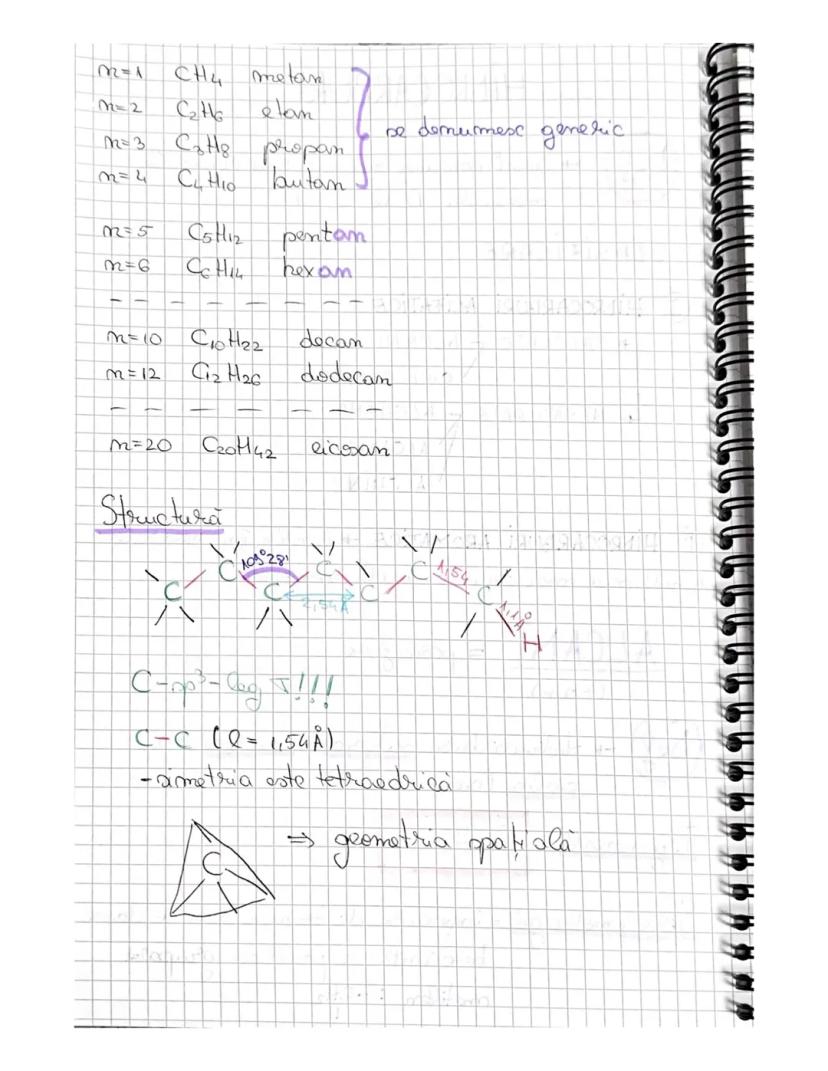 n=1 CH4 metan
n=2 C2H6 etan
n=3 C3H8 propan
n=4 C4H10 butan
se denumesc generic
n=5 C5H12 pentan
n=6 C6H14 hexan
n=10 C10H22 decan
n=12 C12H26 dodecan
n=20 C20H42 eicosan
Structură
C C C C C C C
109°28'
2,54Å
1,54
1,1Å
H
C-sp³-leg σ!!!
C-C (l= 1,54Å)
-simetria este tetraedrică
C
⇒ geometria spațială